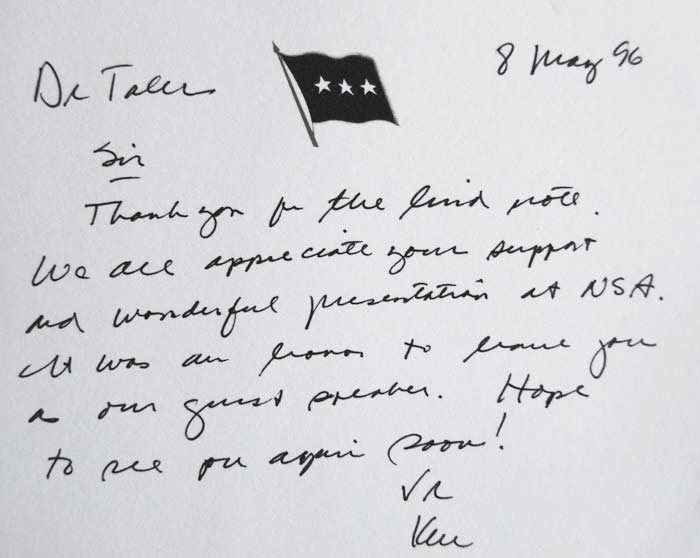 8 May 96
Dr
Sir
Thank you for the kind note.
We all appreciate your support
and wonderful presentation at NSA.
It was an honor to have you
as our guest speaker. Hope
to see you again soon!
VR
Ken